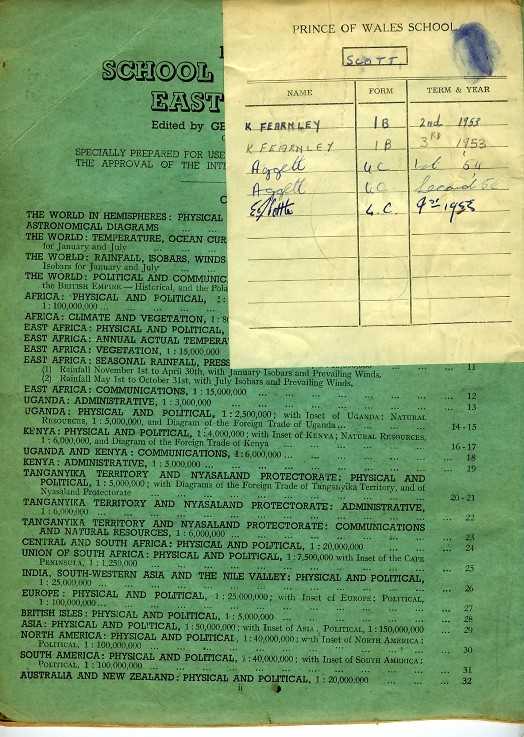 PRINCE OF WALES SCHOOL
SCOTT
NAME FORM TERM & YEAR
K FEARNLEY 1B 2nd 1953
K FEARNLEY 1B 3RD 1953
Aggett 4C 1st 54
Aggett 4C Second
4.C. 1955
SCHOOL
EAST
Edited by GE
SPECIALLY PREPARED FOR USE
THE APPROVAL OF THE INT
C
THE WORLD IN HEMISPHERES: PHYSICAL
ASTRONOMICAL DIAGRAMS ...
THE WORLD: TEMPERATURE, OCEAN CUR
for January and July ...
THE WORLD: RAINFALL, ISOBARS, WINDS
Isobars for January and July ...
THE WORLD: POLITICAL AND COMMUNIC
the BRITISH EMPIRE—Historical, and the Pola
AFRICA: PHYSICAL AND POLITICAL, 1:
1:100,000,000 ...
AFRICA: CLIMATE AND VEGETATION, 1:80
EAST AFRICA: PHYSICAL AND POLITICAL,
EAST AFRICA: ANNUAL ACTUAL TEMPERA
EAST AFRICA: VEGETATION, 1:15,000,000
EAST AFRICA: SEASONAL RAINFALL, PRESS
(1) Rainfall November 1st to April 30th, with January Isobars and Prevailing Winds, ... 11
(2) Rainfall May 1st to October 31st, with July Isobars and Prevailing Winds,
EAST AFRICA: COMMUNICATIONS, 1:15,000,000 ... 12
UGANDA: ADMINISTRATIVE, 1:3,000,000 ... 13
UGANDA: PHYSICAL AND POLITICAL, 1:2,500,000; with Inset of UGANDA: NATURAL
RESOURCES, 1:5,000,000, and Diagram of the Foreign Trade of Uganda ... 14-15
KENYA: PHYSICAL AND POLITICAL, 1:4,000,000; with Inset of KENYA; NATURAL RESOURCES,
1:6,000,000, and Diagram of the Foreign Trade of Kenya ... 16-17
UGANDA AND KENYA: COMMUNICATIONS, 1:6,000,000 ... 18
KENYA: ADMINISTRATIVE, 1:5,000,000 ... 19
TANGANYIKA TERRITORY AND NYASALAND PROTECTORATE: PHYSICAL AND
POLITICAL, 1:5,000,000; with Diagrams of the Foreign Trade of Tanganyika Territory, and of
Nyasaland Protectorate ... 20-21
TANGANYIKA TERRITORY AND NYASALAND PROTECTORATE: ADMINISTRATIVE,
1:6,000,000 ... 22
TANGANYIKA TERRITORY AND NYASALAND PROTECTORATE: COMMUNICATIONS
AND NATURAL RESOURCES, 1:6,000,000 ... 23
CENTRAL AND SOUTH AFRICA: PHYSICAL AND POLITICAL, 1:20,000,000 ... 24
UNION OF SOUTH AFRICA: PHYSICAL AND POLITICAL, 1:7,500,000 with Inset of the CAPE
PENINSULA, 1:1,250,000 ... 25
INDIA, SOUTH-WESTERN ASIA AND THE NILE VALLEY: PHYSICAL AND POLITICAL,
1:25,000,000 ... 26
EUROPE: PHYSICAL AND POLITICAL, 1:25,000,000; with Inset of EUROPE: POLITICAL,
1:100,000,000 ... 27
BRITISH ISLES: PHYSICAL AND POLITICAL, 1:5,000,000 ... 28
ASIA: PHYSICAL AND POLITICAL, 1:50,000,000; with Inset of ASIA, POLITICAL, 1:150,000,000 ... 29
NORTH AMERICA: PHYSICAL AND POLITICAL, 1:40,000,000; with Inset of NORTH AMERICA:
POLITICAL, 1:100,000,000 ... 30
SOUTH AMERICA: PHYSICAL AND POLITICAL, 1:40,000,000; with Inset of SOUTH AMERICA:
POLITICAL, 1:100,000,000 ... 31
AUSTRALIA AND NEW ZEALAND: PHYSICAL AND POLITICAL, 1:20,000,000 ... 32
ii